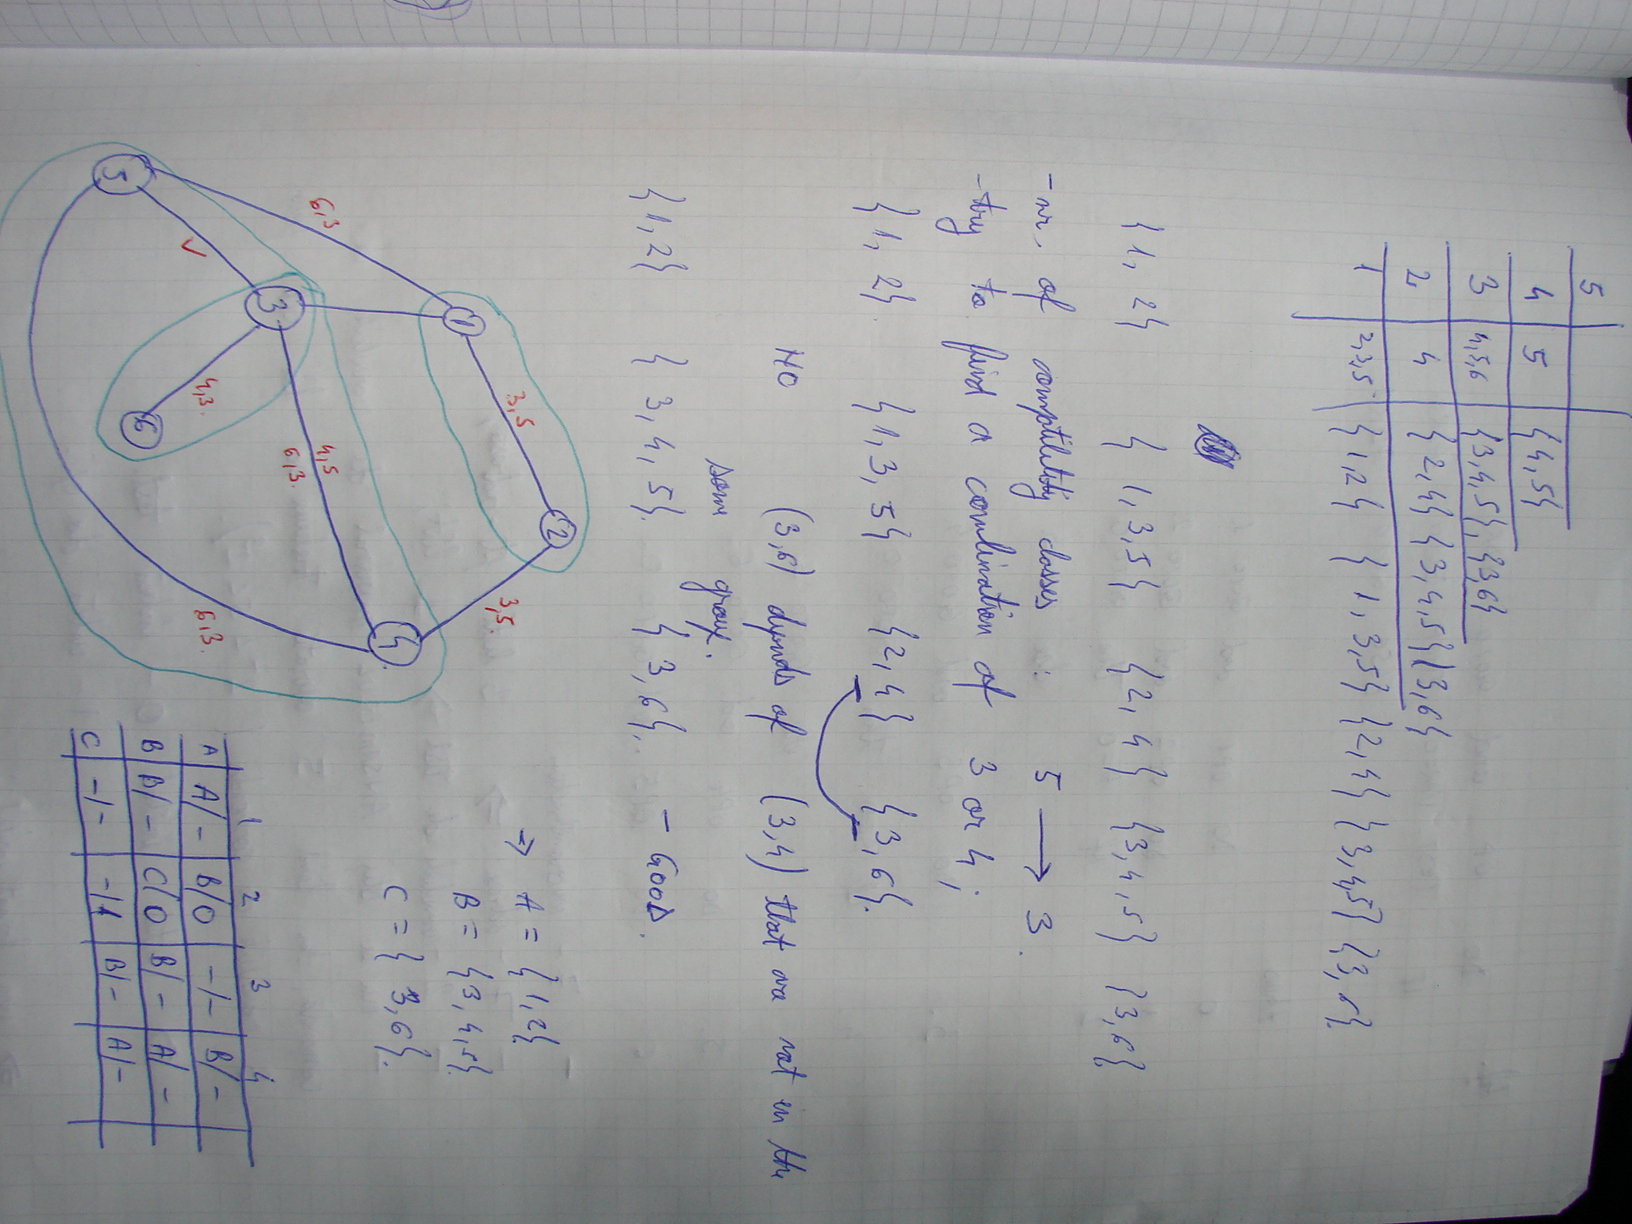 5
4 | 5 | {4,5}
3 | 4,5,6 | {3,4,5}, {3,6}
2 | 4 | {2,4} {3,4,5} {3,6}
1 | 2,3,5 | {1,2} {1,3,5} {2,4} {3,4,5} {3,6}.
{1,2} {1,3,5} {2,4} {3,4,5} {3,6}
- nr. of comptilility classes : 5 → 3.
- try to find a combination of 3 or 4;
{1,2}. {1,3,5} {2,4} {3,6}.
NO (3,6) dpnds of (3,4) that are not in the
same group.
{1,2} {3,4,5}. {3,6}. - GOOD.
⇒ A = {1,2}
B = {3,4,5}.
C = {3,6}.
1
2
3
4
5
6
6,3
3,5
3,5.
✓
4,5
6,3.
4,3.
6,3.
1 2 3 4
A | A/- | B/0 | -/- | B/-
B | B/- | C/0 | B/- | A/-
C | -/- | -/1 | B/- | A/-